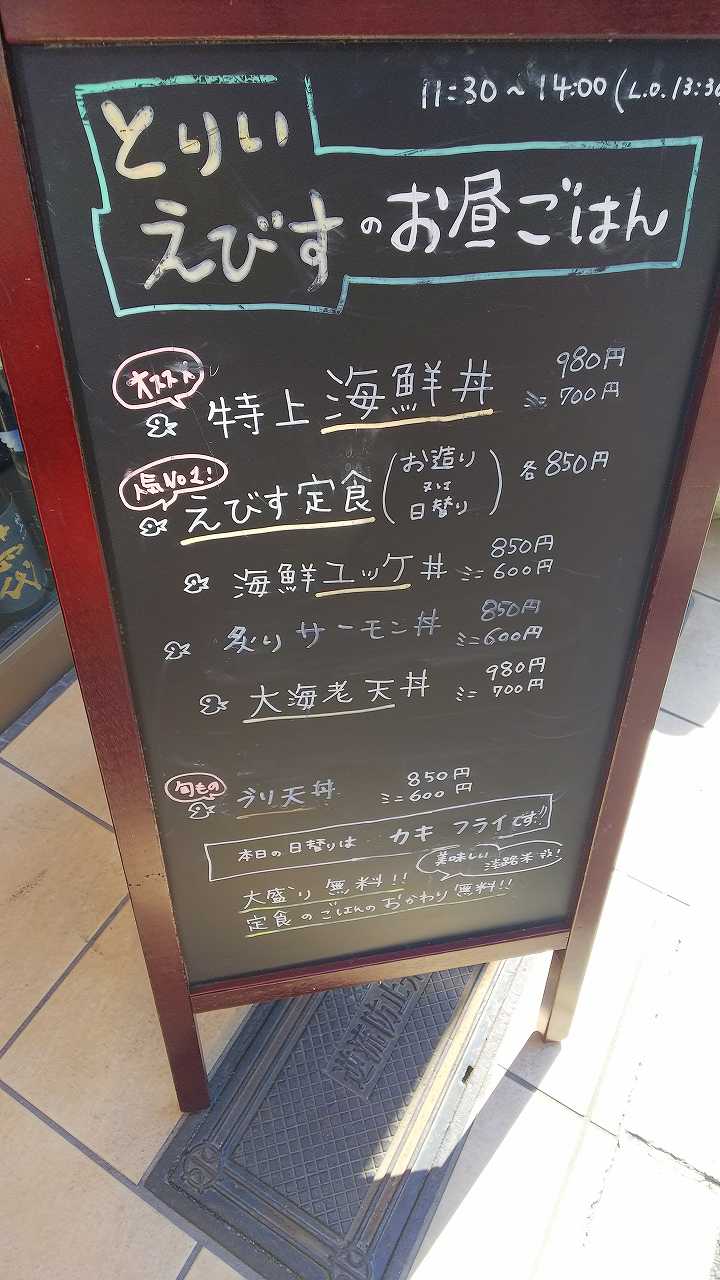 11:30～14:00(L.O.13:30
とりい
えびすのお昼ごはん
オススメ
特上海鮮丼 980円
ミニ 700円
人気No1!
えびす定食(お造り又は日替り) 各850円
海鮮ユッケ丼 850円
ミニ 600円
炙りサーモン丼 850円
ミニ 600円
大海老天丼 980円
ミニ 700円
旬もの
ブリ天丼 850円
ミニ 600円
本日の日替りは カキフライです!!
美味しい
淡路米
大盛り無料!!
定食のごはんのおかわり無料!!
逆流防止